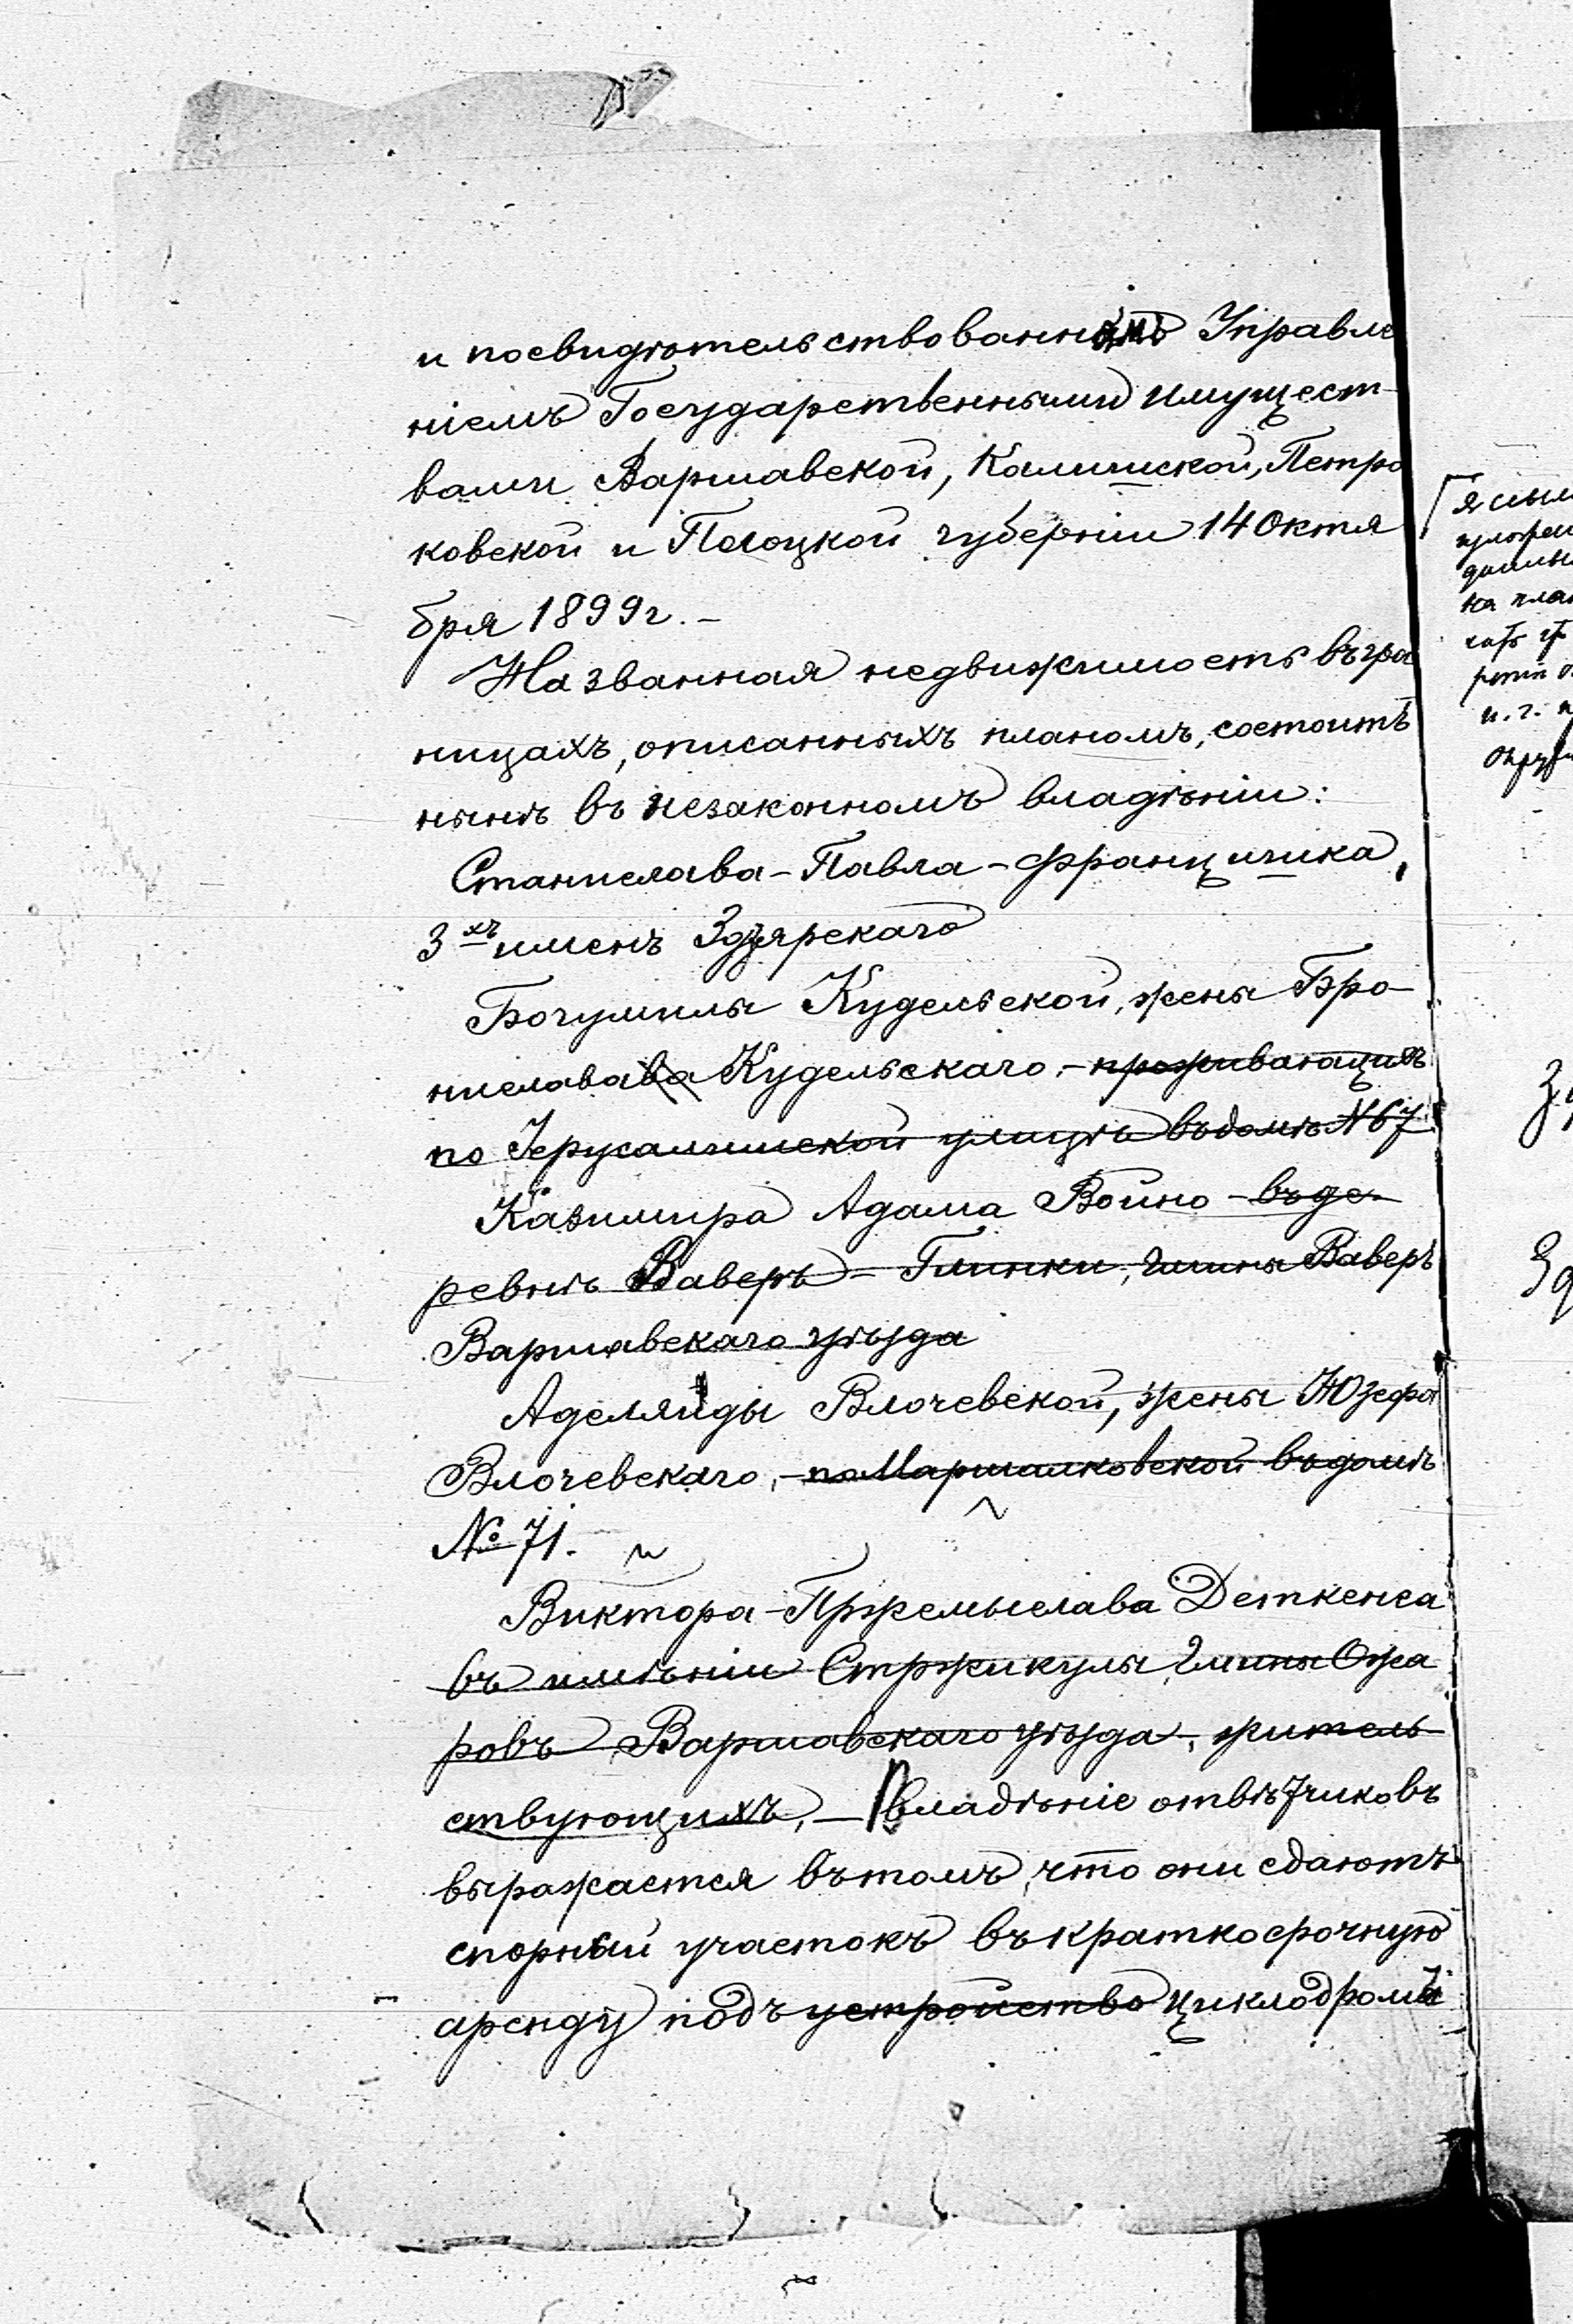 и посвидѣтельствованнымъ Управле
ніемъ Государственными имущест-
вами Варшавской, Калишской, Петро
ковской и Плоцкой губерніи 14 Октя
бря 1899 г. -
Названная недвижимость въ гра
ницахъ, описанныхъ планомъ, состоитъ
нынѣ въ незаконномъ владѣніи:
Станислава-Павла-Францишка,
3хъ именъ Здзярскаго
Богумилы Кудельской, жены Бро-
нислава Кудельскаго, - проживающихъ
по Іерусалимской улицѣ въ домѣ N 67
Казимира Адама Войно - въ де-
ревнѣ Ваверъ - Глинки, гмины Ваверъ
Варшавскаго уѣзда
Аделяиды Влочевской, жены Юзефа
Влочевскаго, - по Маршалковской въ домѣ
№ 71.
Виктора-Пржемыслава Деткенса
въ имѣніи Стржикулы, гмины Ожа
ровъ, Варшавскаго уѣзда, житель
ствующихъ, - Владѣніе отвѣтчиковъ
выражается въ томъ, что они сдаютъ
спорный участокъ въ краткосрочную
аренду подъ устройство циклодрома